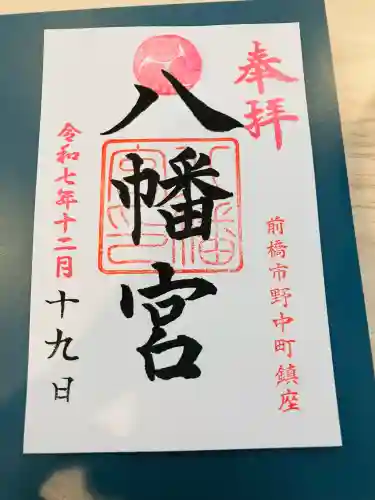 奉拝
前橋市野中町鎮座
八幡宮
令和七年十二月十九日